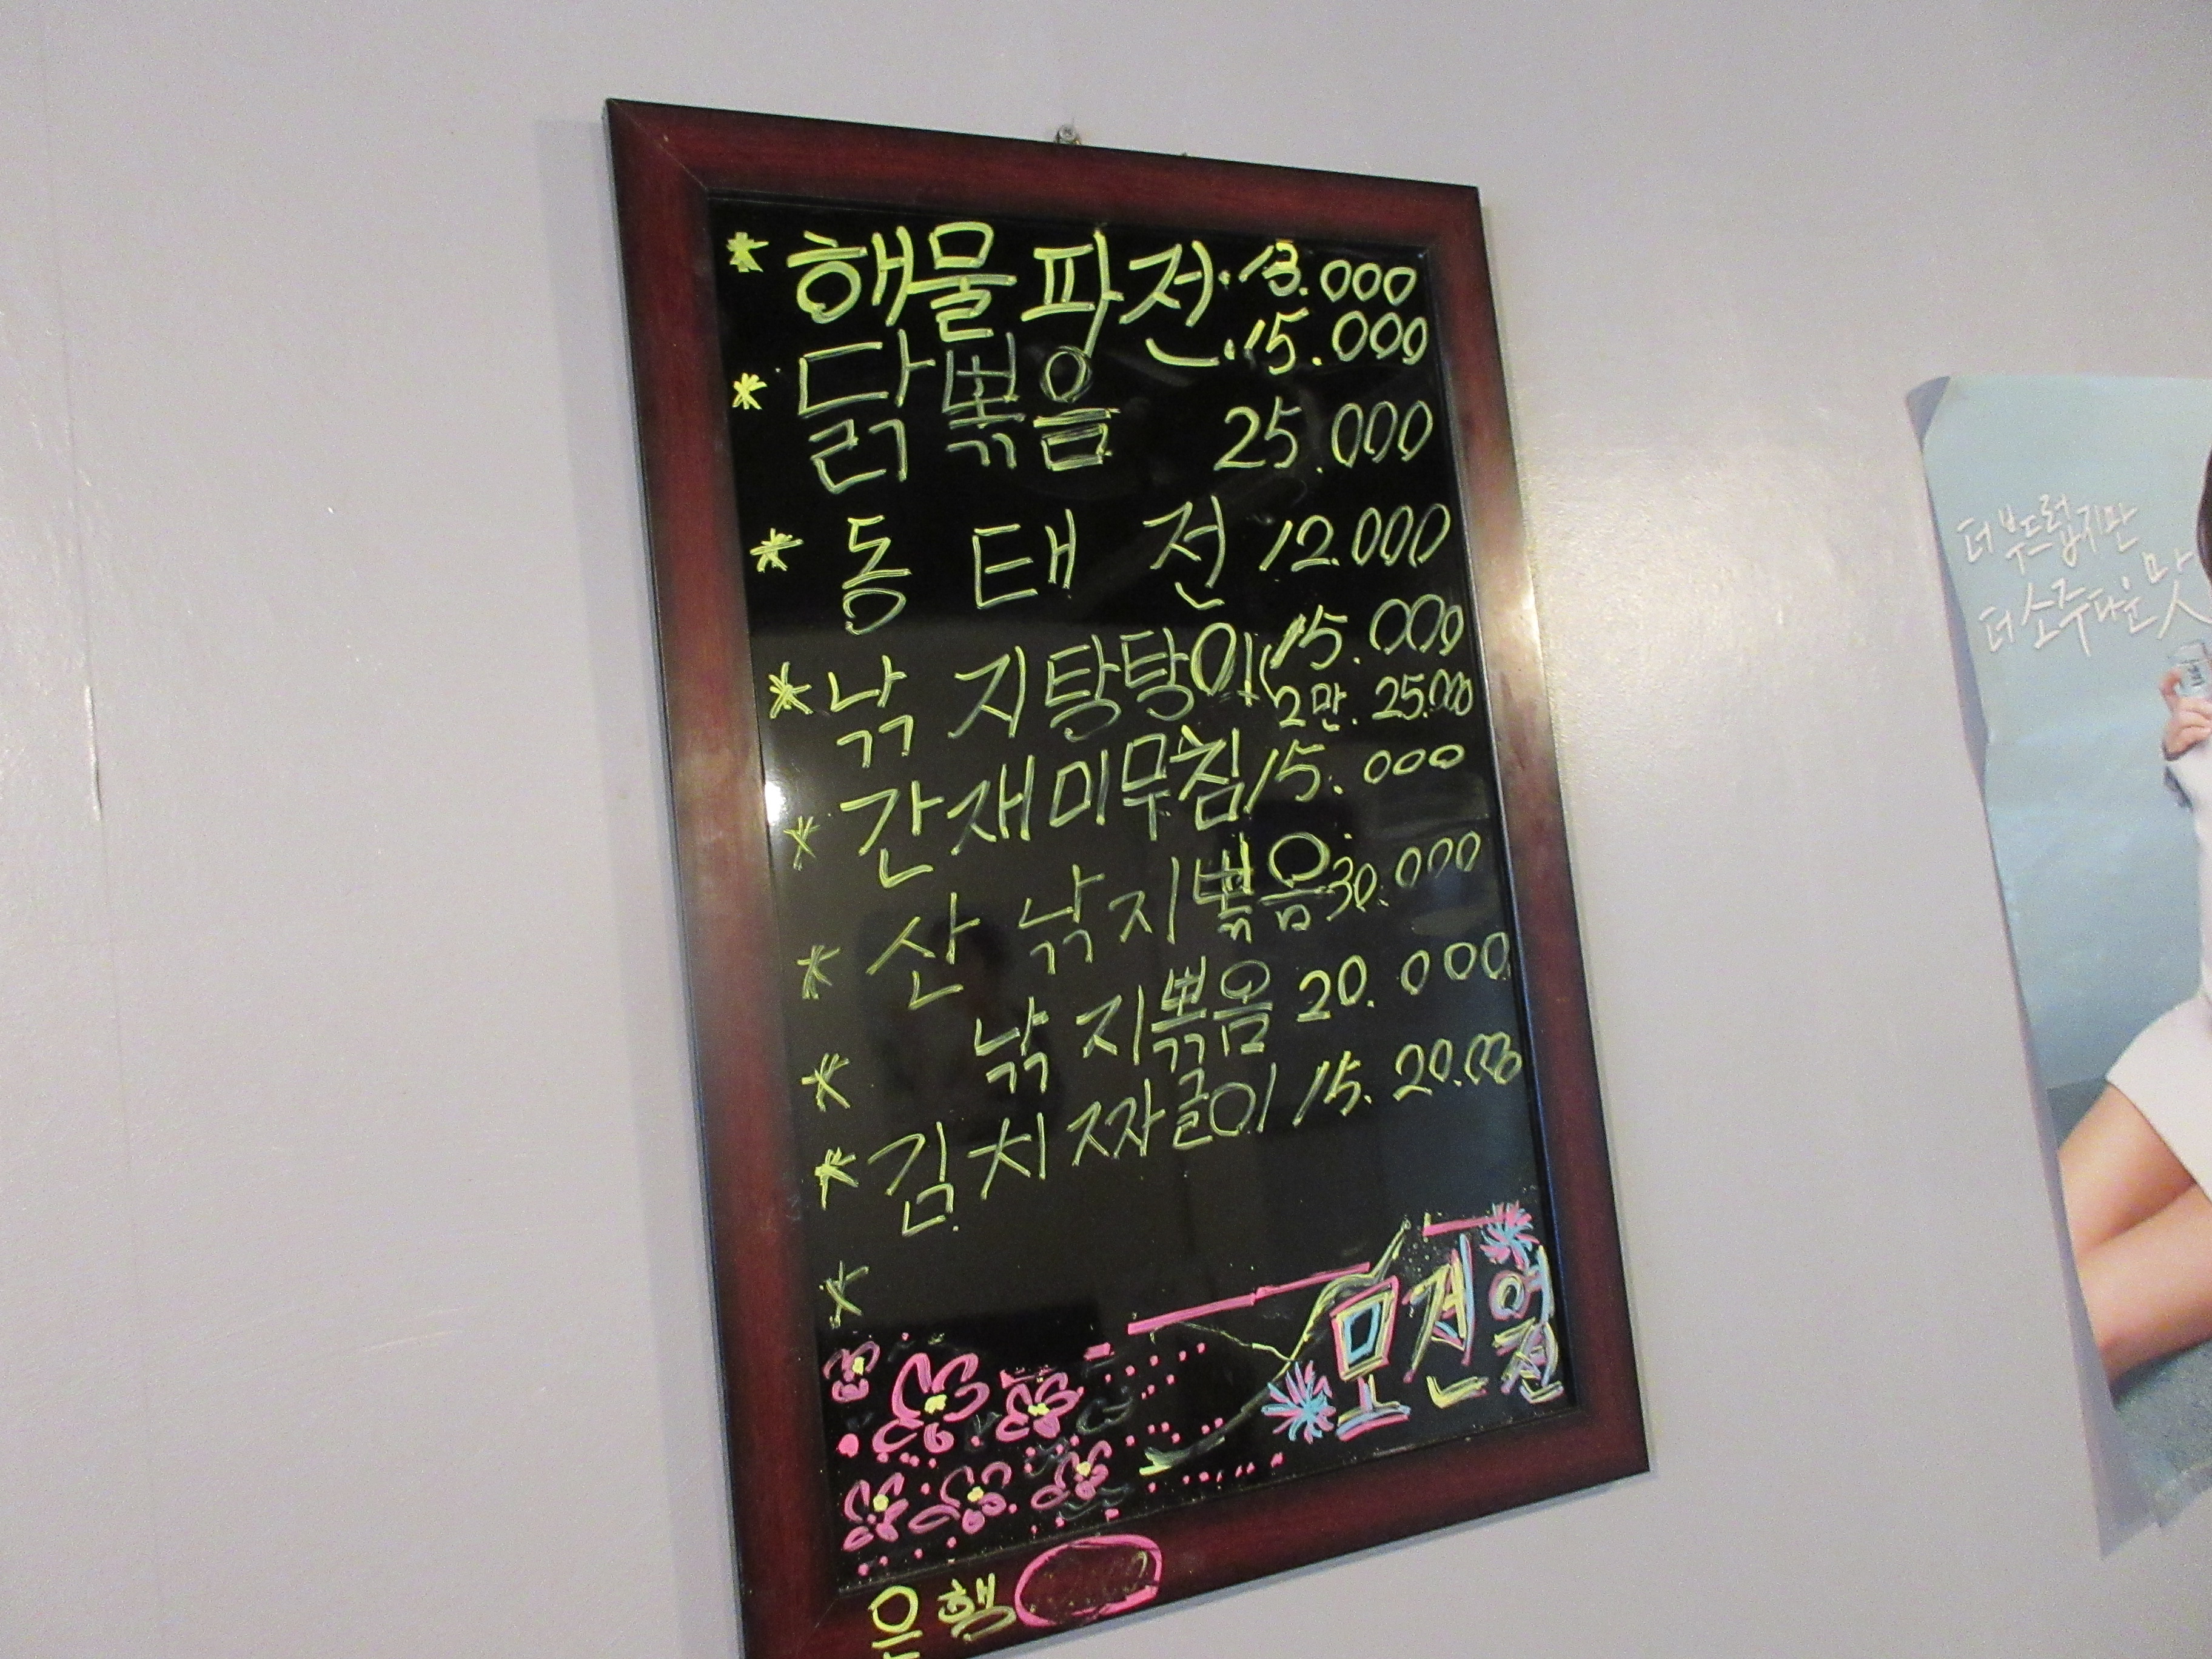 * 해물파전. 13.000
.15.000
* 닭볶음 25.000
* 동태전 12.000
* 낚지탕탕이(15.000
2만. 25.000
* 간재미무침 15.000
* 산낚지볶음 30.000
* 낚지볶음 20.000
* 김치짜글이 15. 20.000
*
은행
더 부드럽지만
더 소주다운 맛